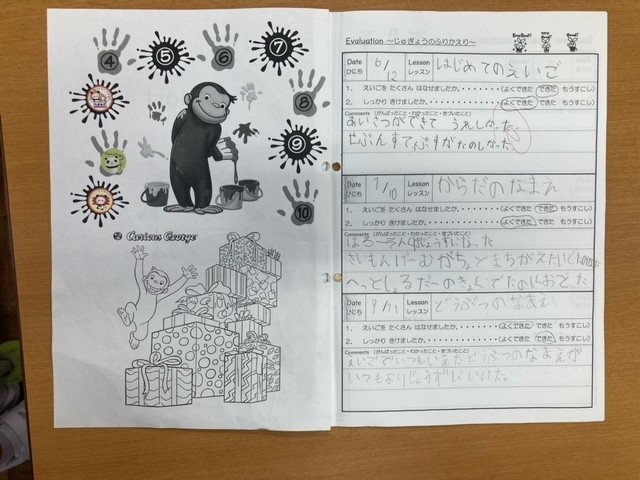 ④
⑤
⑥
⑦
⑧
⑨
⑩
Curious George
Evaluation ~じゅぎょうのふりかえり~
Good!
Date ひにち 6/12 Lesson レッスン はじめてのえいご
1. えいごを たくさん はなせましたか。・・・・・・・(よくできた できた もうすこし)
2. しっかり きけましたか。・・・・・・・・・・・・(よくできた できた もうすこし)
Comments (がんばったこと・わかったこと・きづいたこと)
あいさつができて うれしかった。
せぶんすてっぷすがたのしかった。
Date ひにち 7/10 Lesson レッスン からだのなまえ
1. えいごを たくさん はなせましたか。・・・・・・・(よくできた できた もうすこし)
2. しっかり きけましたか。・・・・・・・・・・・・(よくできた できた もうすこし)
Comments (がんばったこと・わかったこと・きづいたこと)
さいもんげーむがちょっとまちがえたけど
Date ひにち 9/11 Lesson レッスン どうぶつのなまえ
1. えいごを たくさん はなせましたか。・・・・・・・(よくできた できた もうすこし)
2. しっかり きけましたか。・・・・・・・・・・・・(よくできた できた もうすこし)
Comments (がんばったこと・わかったこと・きづいたこと)
えいごでいつもいえたどうぶつのなまえが
いつもよりじょうずにいけた。